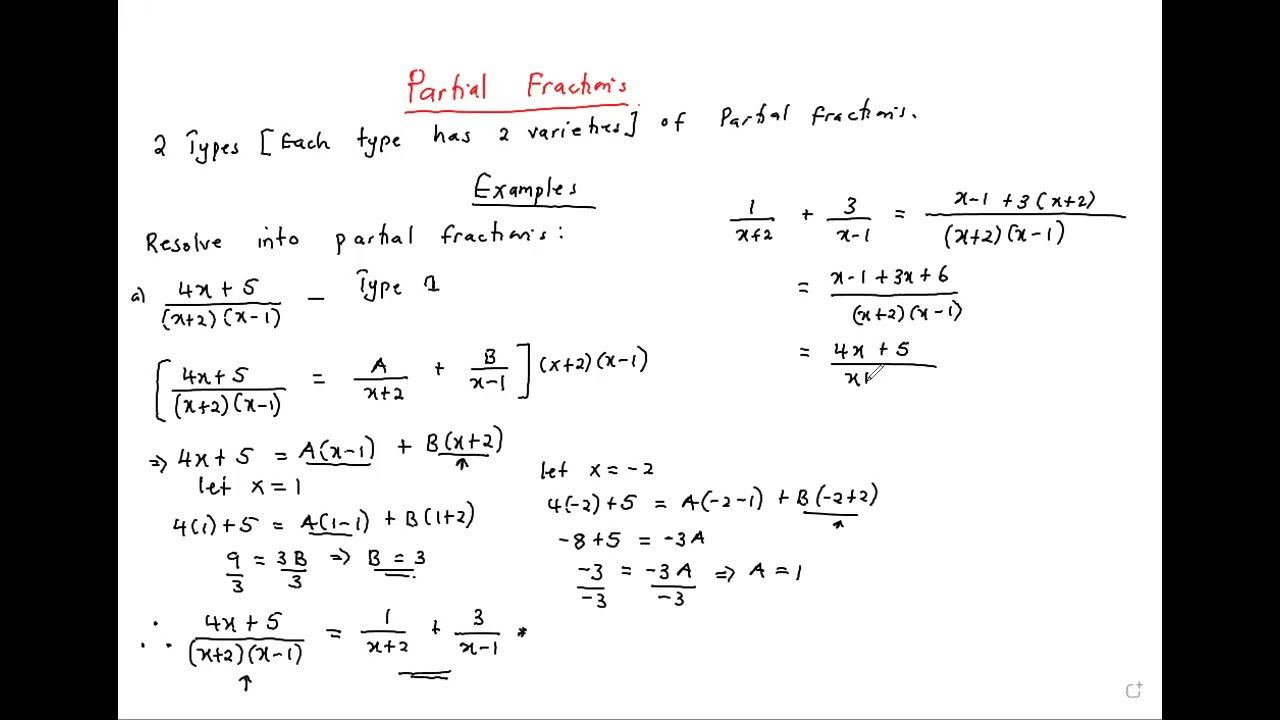 Partial Fractions
2 Types [Each type has 2 varieties] of Partial fractions.
Examples
Resolve into partial fractions:
a) (4x + 5)/((x+2)(x-1)) – Type 1
[(4x + 5)/((x+2)(x-1)) = A/(x+2) + B/(x-1)] (x+2)(x-1)
=> 4x + 5 = A(x-1) + B(x+2)
let x = 1
4(1) + 5 = A(1-1) + B(1+2)
9/3 = 3B/3 => B = 3
let x = -2
4(-2) + 5 = A(-2-1) + B(-2+2)
-8 + 5 = -3A
-3/-3 = -3A/-3 => A = 1
∴ (4x + 5)/((x+2)(x-1)) = 1/(x+2) + 3/(x-1) *
1/(x+2) + 3/(x-1) = (x-1 + 3(x+2))/((x+2)(x-1))
= (x-1 + 3x + 6)/((x+2)(x-1))
= (4x + 5)/(x